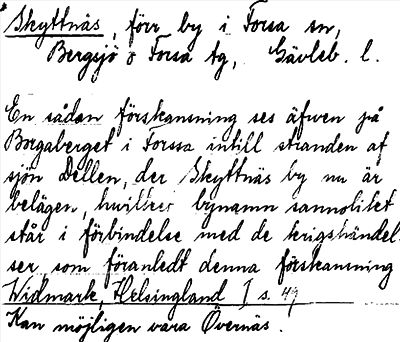 Skyttnäs, förr by i Forsa sn,
Bergsjö o Forsa tg, Gävleb. l.
En sådan förskansning ses äfwen på
Borgaberget i Forssa intill stranden af
sjön Dellen, der Skyttnäs by nu är
belägen, hwilket bynamn sannolikt
står i förbindelse med de krigshändel-
ser, som föranledt denna förskansning
Widmark, Helsingland I s. 49
Kan möjligen vara Övernäs.